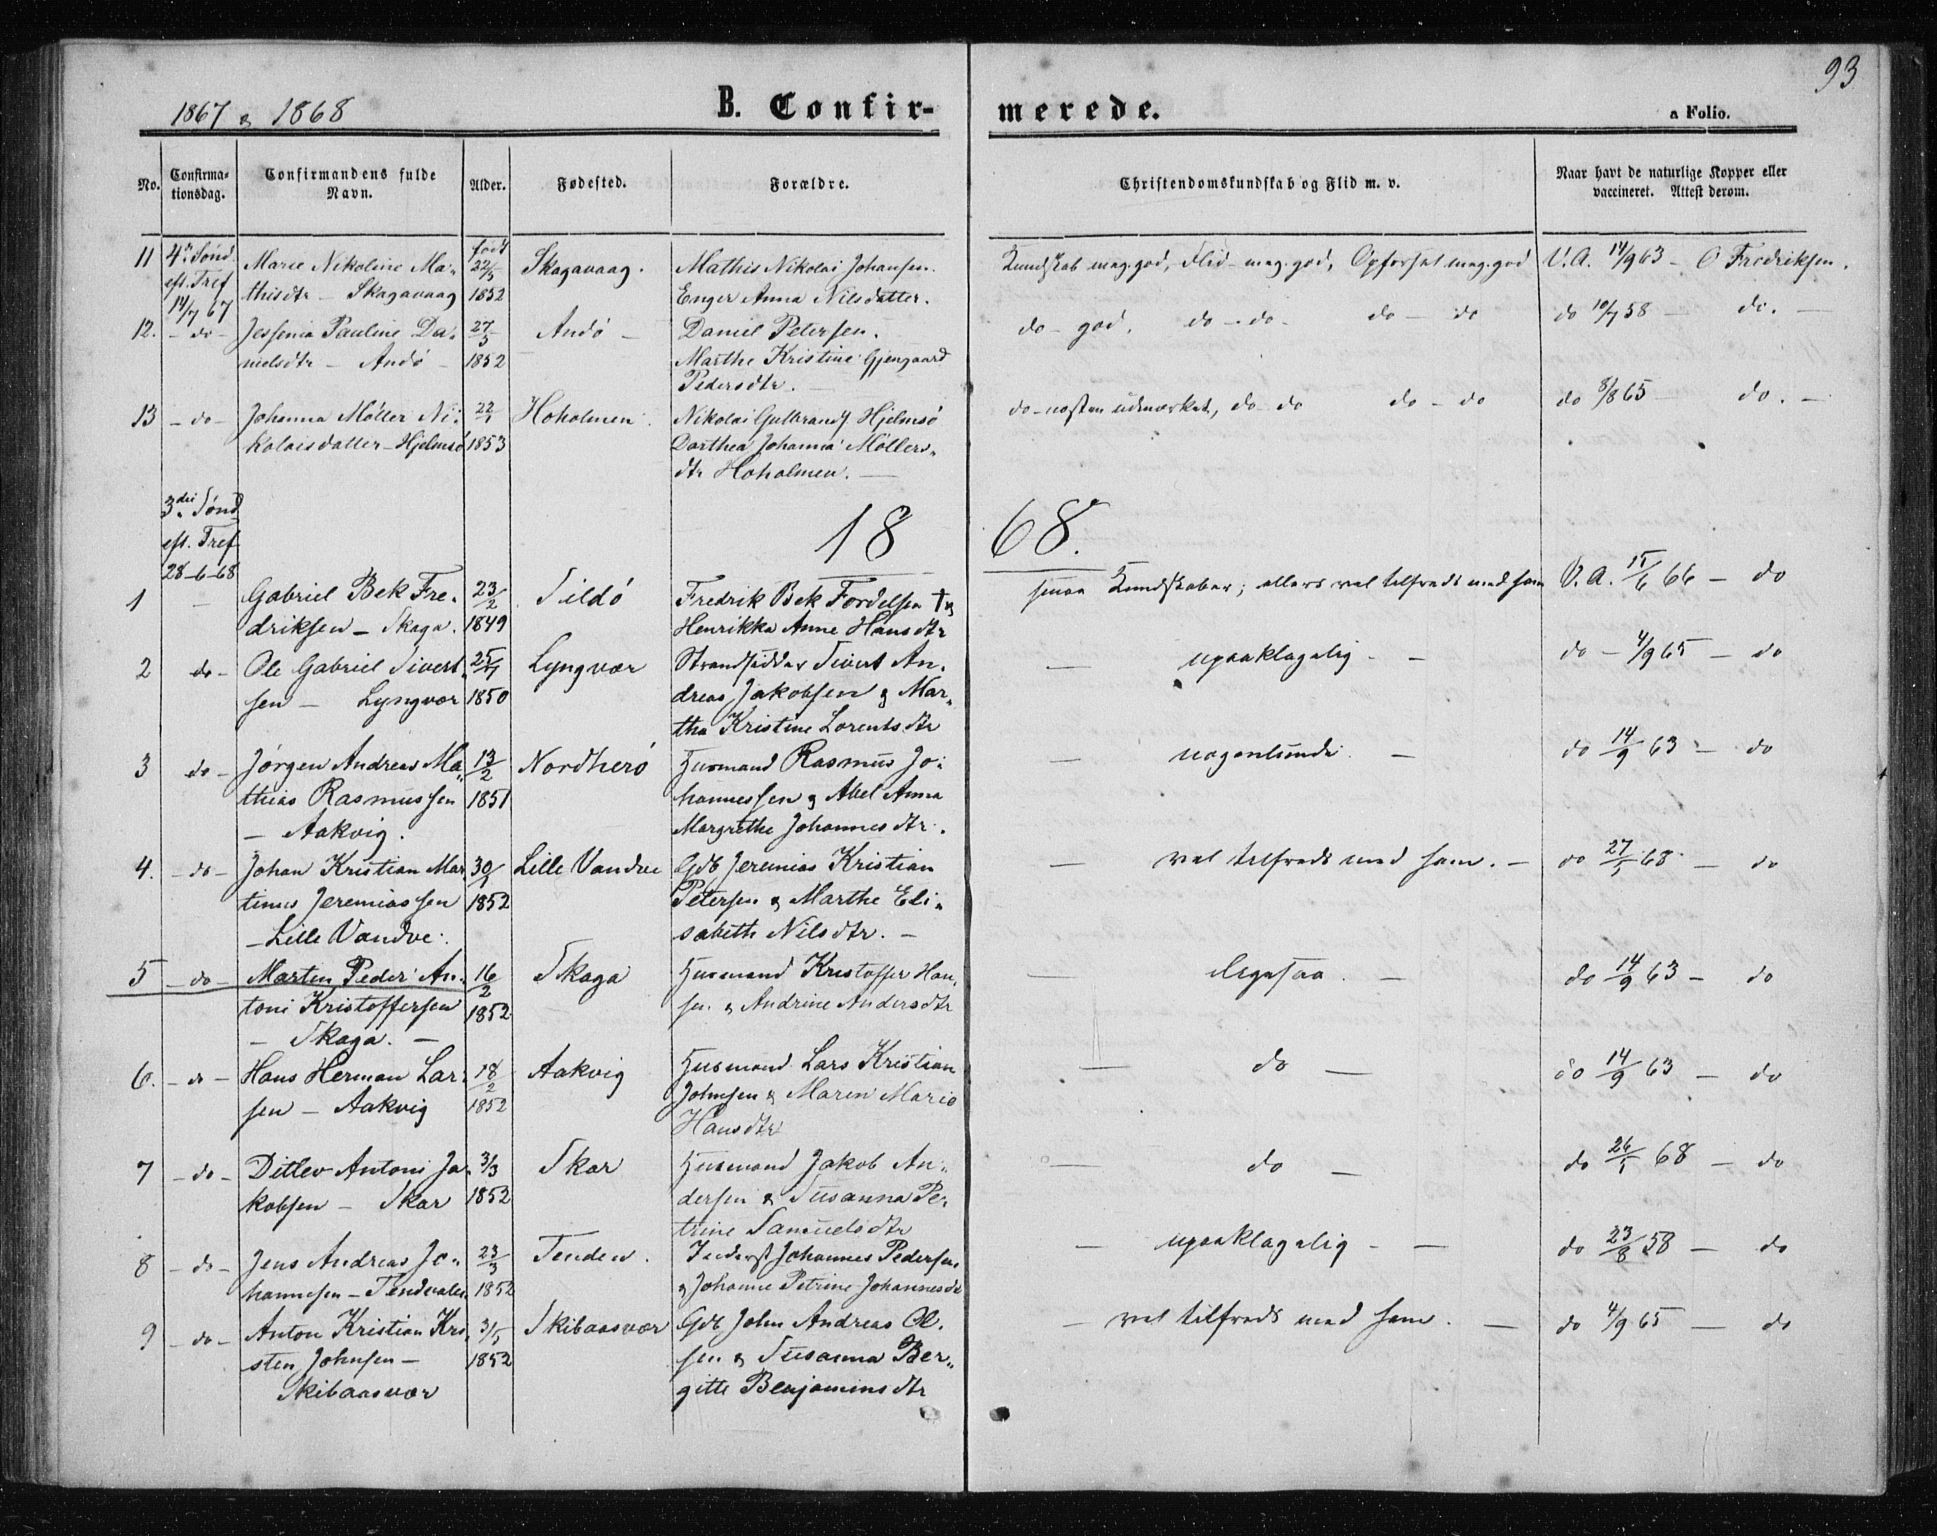 93
1867 & 1868
B. Confirmerede.
a Folio.
No. Confirmationsdag. Confirmandens fulde Navn. Alder. Fødested. Forældre. Christendomskundskab og Flid m. v. Naar havt de naturlige Kopper eller vaccineret. Attest derom.
11 4de Sønd. Marie Nikoline Ma- født 22/5 Skagavaag. Mathis Nikolai Johansen. Kundskab meg. god, Flid - meg. god, Opførsel meg. god V.A. 14/9 63 - O Fredriksen.
eft. Tref. thisdtr - Skagavaag 1852 Enger Anna Nilsdatter.
14/7 67
12. - do - Jessenia Pauline Da- 27/5 Andø - Daniel Petersen. do - god. do - do - do - do do 10/7 58 - do. -
nielsdtr - Andø - 1852 Marthe Kristine Gjengaard
Pedersdtr. -
13 - do - Johanna Møller Ni- 22/1 Hoholmen. Nikolai Gulbrands. Hjelmsø do - næsten udmærket, do - do do - do do 8/8 65 - do. -
kolaisdatter - Hjelmsø 1853 Dorthea Johanna Møllers-
dtr Hoholmen. -
3die Sønd
eft. Tref
28-6-68
1868.
1 - Gabriel Bek Fre- 23/2 Tildø Fredrik Bek Fordelsen † & smaa Kundskaber; ellers vel tilfreds med ham V.A. 15/6 66 - do
driksen - Skaga. 1849 Henrikka Anne Hansdtr
2 do - Ole Gabriel Sivert- 25/7 Lyngvær Strandsidder Sivert An- - upaaklagelig - - do - 4/9 65 - do
sen - Lyngvær 1850 dreas Jakobsen & Mar-
tha Kristine Lorentsdtr
3 do - Jørgen Andreas Ma- 13/2 Nordherø Husmand Rasmus Jo- - nogenlunde. - do 14/9 63 - do
thias Rasmussen 1851 hannessen & Abel Anna
- Aakvig. Margrethe Johannesdtr.
4. - do - Johan Kristian Mar- 30/1 Lille Vandve Gdb Jeremias Kristian - vel tilfreds med ham. - do 27/5 68 - do
tinus Jeremiassen 1852 Petersen & Marthe Eli-
- Lille Vandve. sabeth Nilsdtr. -
5 - do - Marten Peder An- 16/2 Skaga Husmand Kristoffer Han- - ligesaa. - do 14/9 63 - do
toni Kristoffersen 1852 sen. & Andrine Andersdtr
- Skaga. -
6. - do - Hans Herman Lar- 18/2 Aakvig Husmand Lars Kristian - do - do 14/9 63 - do
sen - Aakvig 1852 Johnsen & Maren Marie
Hansdtr
7 - do - Ditlev Antoni Ja- 3/3 Skar Husmand Jakob An- - do - do 26/5 68 - do
kobsen - Skar 1852 dersen & Susanna Pe-
trine Samuelsdtr
8 - do - Jens Andreas Jo- 23/3 Tenden. Inderst Johannes Pedersen - upaaklagelig - - do 23/8 58 - do
hannesen - Tendvalen 1852 & Johanne Petrine Johannesdtr
9 - do - Anton Kristian Kri- 3/5 Skibaasvær Gdb John Andreas Ol- - vel tilfreds med ham. - do 4/9 65 - do
sten Johnsen - 1852 sen & Susanna Ber-
Skibaasvær gitte Benjaminsdtr